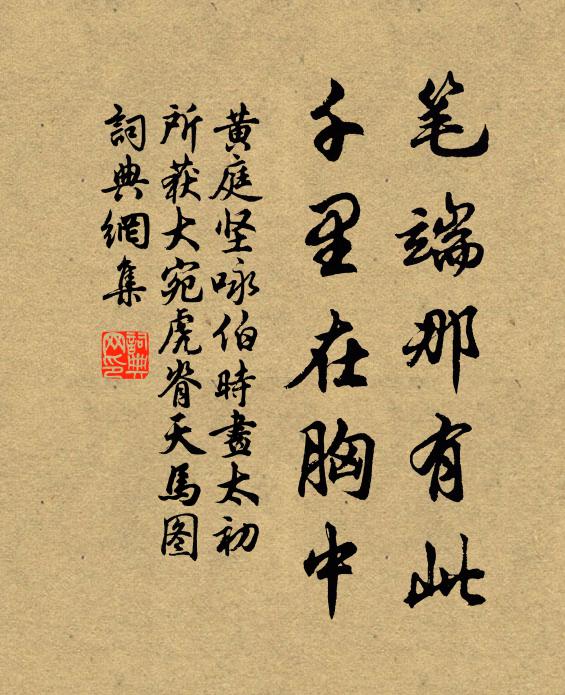 笔端那有此
千里在胸中
黄庭坚咏伯時畫太初
所获大宛虎脊天馬图
詞典網集
詞典网印